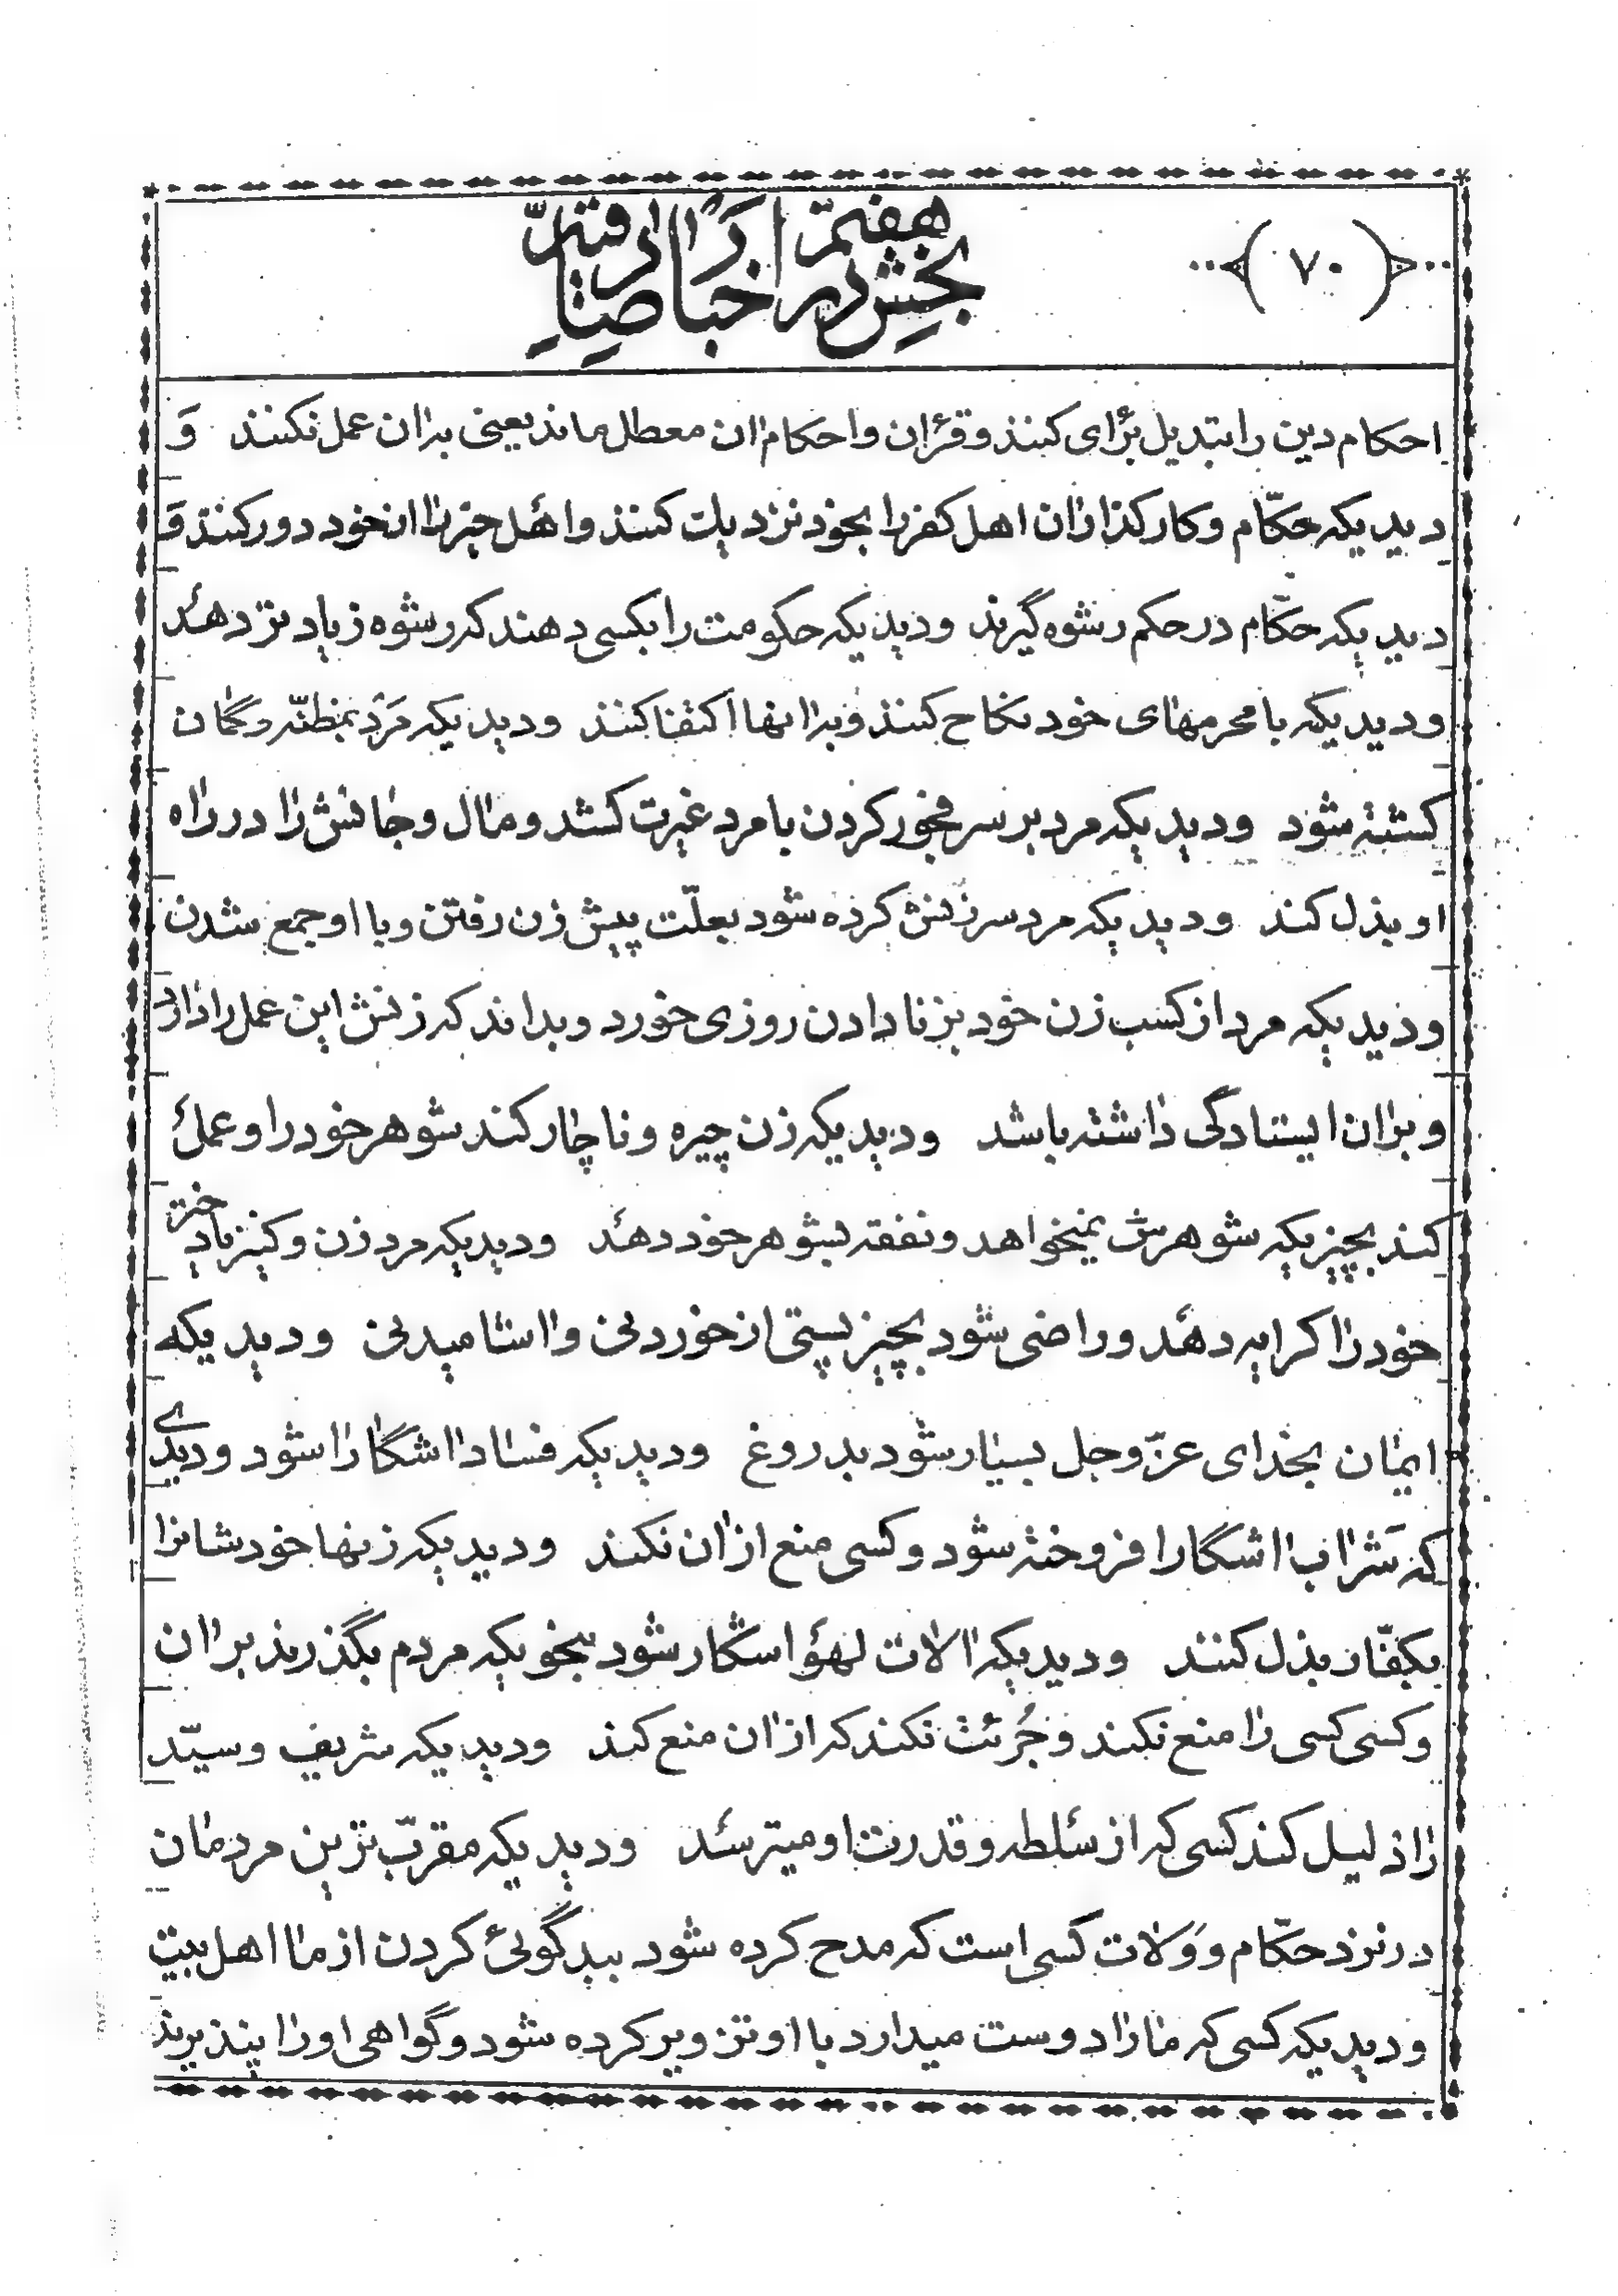 (۷۰)
بخش هفتم در اخبار صادقیه
احکام دین را تبدیل برأی کنند و قرءان و احکام اٰن معطل ماند یعنی بداٰن عمل نکنند وَ
دیدیکه حکّام و کارگذاران اهل کفر را بخود نزدیک کنند و اهل خیر را از خود دور کنند وَ
دیدیکه حکّام در حکم رشوه گیرند ودیدیکه حکومت را بکسی دهند که رشوه زیادتر دهد
ودیدیکه با محرمهای خود نکاح کنند و بداٰنها اکتفا کنند ودیدیکه مَرد بمظنّه و گمان
کشته شود ودیدیکه مرد بر سر فجور کردن با مرد غیرت کشد و مال و جانش را در راه
او بذل کند ودیدیکه مرد سرزنش کرده شود بعلّت پیش زن رفتن و با او جمع شدن
ودیدیکه مرد از کسب زن خود بزنا دادن روزی خورد و بداند که زنش این عمل را دارد
و براٰن ایستادگی داشته باشد ودیدیکه زن چیره و ناچار کند شوهر خود را و عمل
کند بچیزیکه شوهرش نمیخواهد و نفقه بشوهر خود دهد ودیدیکه مرد زن و کنیز یا دختر
خود را کرایه دهد و راضی شود بچیز پستی از خوردنی و اٰشامیدنی ودیدیکه
ایمان بخدای عزّ و جل بسیار شود بدروغ ودیدیکه فساد اٰشگارا شود و دیدی
که شراب اٰشگارا فروخته شود و کسی منع از اٰن نکند ودیدیکه زنها خودشانرا
بکفّار بذل کنند ودیدیکه اٰلات لهو اشگار شود بنحویکه مردم بگذرند براٰن
و کسی کسی را منع نکند و جُرئت نکند که از اٰن منع کند ودیدیکه شریف و سیّد
را ذلیل کند کسی که از سلطه و قدرت او میترسد ودیدیکه مقرب ترین مردمان
در نزد حکّام و وَلات کسی است که مدح کرده شود ببدگوئی کردن از ما اهل بیت
ودیدیکه کسی که ما را دوست میدارد با او تزویر کرده شود و گواهی او را نپذیرند